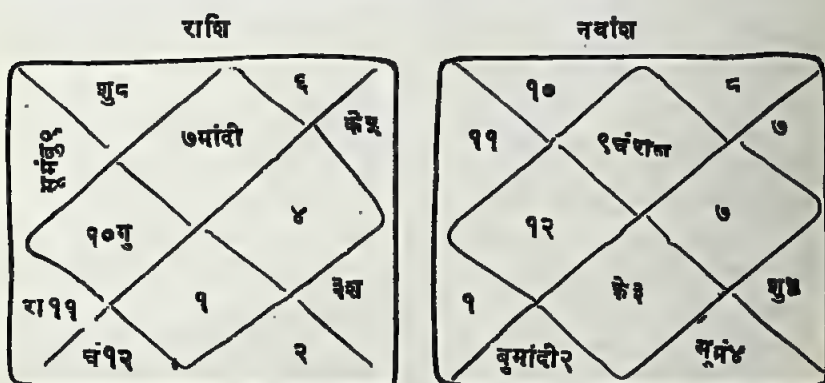 राशि
शु८
६
सूमंबु९
७मांदी
के५
१०गु
४
रा११
१
३श
चं१२
२
नवांश
१०
८
११
९चंरा
७
१२
७
१
के३
शु५
बुमांदी२
सूमं४